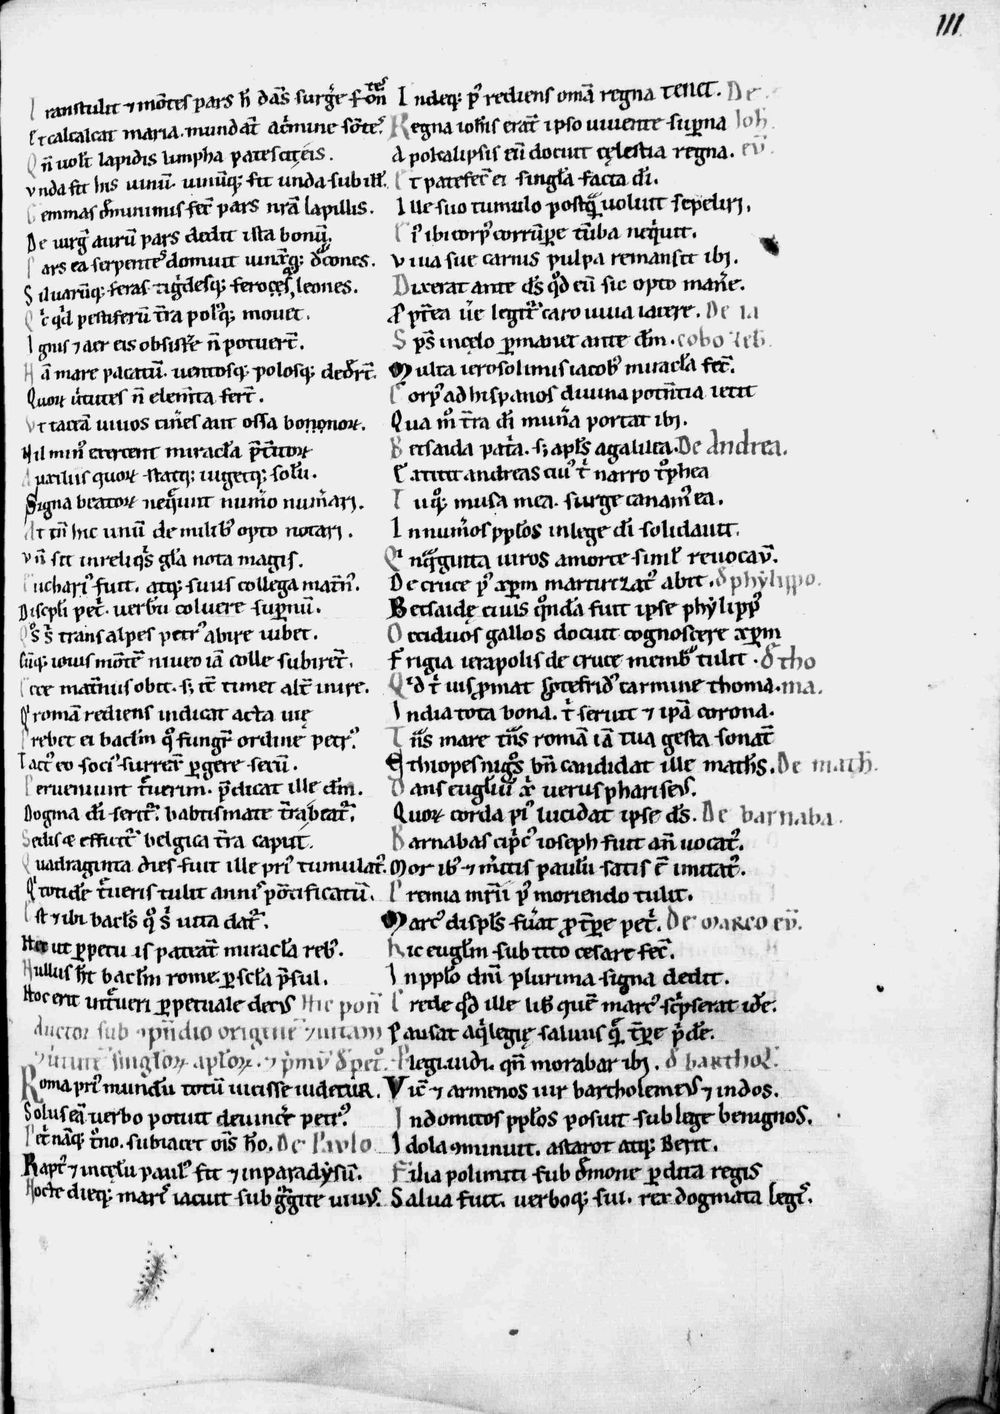 111
Transtulit ⁊ mōtes pars h̄ dās̄ surgˀe fōtēs
Et calcalcat maria. mundat̄ acˀmine sōtēˀ.
Qn̄ uolt̄ lapidis limpha patescitˀeis.
Vnda fit his uinū. uinūq; fit unda sub ill̄.
Gemmas dm̄inimus fec̄ pars nr̄a lapillis.
De uirgˀ aurū pars dedit ista bonū.
Pars ea serpentēˀ domuit uinctāq; dˀcones.
Siluarūq; feras tigˀdesq; feroces leones.
Qˀcqˀd pestiferū tr̄a polˀq; mouet.
Ignis ⁊ aer eis obsistˀe n̄ potuert̄.
Hā mare pacatū. uentosq; polosq; dedert̄.
Quoꝝ uˀtutes n̄ elem̄ta fert̄.
Vt tactā uiuos cinˀes aut ossa bonoꝝ.
Nil minˀ exercent miracl̄a pt̄itoꝝ
Auxiliis quoꝝ statq; uigetq; solū.
Signa beatoꝝ neqˀunt numˀo numˀari.
At tn̄ hic unū de milibˀ opto notari.
Vn̄ sit inreliqˀs gl̄a nota magis.
Euchariˀ fuit. atq; suus collega matn̄ˀ.
Discpl̄i petˀ. uerbū coluere supn̄ū.
Qˀs sˀ trans alpes petrˀ abire iubet.
Cūq; iouis mōtē niueo iā colle subiret̄.
Ecce matn̄us obit. s; tc̄ timet alt̄ inire.
Qˀ romā rediens indicat acta uię
Prebet ei bacl̄m qˀ fungr̄ ordine petrˀ.
Tactˀ eo sociˀ surrex̄ pgere secū.
Peruenıunt tˀuerim. pˀdicat ille dm̄.
Dogma dī seritˀ. babtismate tr̄a beatˀ.
Sedis æ efficitˀ belgica tr̄a caput.
Quadraginta dies fuit ille priˀ tumulatˀ.
Qˀ totidē tˀueris tulit annˀ pōtificatū.
Est ⁊ ibi bacl̄s qˀ sˀ uita datˀ.
Hec ut ppetuis pateat̄ miracl̄a rebˀ.
Nullus ht̄ bacl̄m rome. p scl̄a pˀsul.
Hoc erit intˀueri ppetuale decˀ Hic poñ
ductor sub ꝯpn̄dio origine ⁊ uitam
⁊ uirtutē singloꝝ apl̄oꝝ. ⁊ pˀmū dˀ petˀ.
Roma priˀ mundū totū uicisse uidetur.
Solus eā uerbo potuit deuincˀe petrˀ.
Petˀ nāq; tˀno. subiacet oīs hō. De Pavlo
Raptˀ ⁊ incęlū paulˀ fit ⁊ inparadysū.
Nocte dieq; marˀ iacuit sub gˀgite uiuˀ.
Indeq; pˀ rediens omā regna tenet. De
Regna ioh̄is erat̄ ipso uiuente supna Ioh̄.
Apolcalipsis eū docuit cęlestia regna. eū.
Et patefec̄ ei singl̄a facta dī.
Ille suo tumulo postqā uoluit sepeliri,
Nˀ ibi corpˀ corrūpe tūba neqˀuit.
Viua sue carnis pulpa remansit ibi.
Dixerat ante ds̄ qˀd eū sic opto manˀe.
Ppt̄ea uˀe legitˀ caro uiua iacere. De ia
Sps̄ incęlo pmanet ante dm̄. cobo zeb̄.
Multa ierosolimis iacobˀ miracl̄a fec̄.
Corpˀ ad hispanos diuina potn̄tia uexit
Qua mˀ tr̄a dī munˀa portat ibi.
Betsaida patˀa. s; apl̄s agalilea. De Andrea.
Extitit andreas ciuˀ tˀ narro tˀphea
Tuqˀ. musa mea. surge canamˀ ea.
Innumˀos ppl̄os inlege dī solidauit.
Qˀ nqˀginta uiros amorte simlˀ reuocaū.
De cruce pˀ xpm̄ martirizatˀ abit. dˀ phylippo.
Betsaidę ciuis qˀndā fuit ipse phylippˀ
Occiduos gallos docuit cognoscere xpm̄
Frigia ierapolis de cruce membˀ tulit. dˀ tho
Qˀd tˀ uis pmat sotefridˀ carmine thoma. ma.
India tota bona. tˀ seruit ⁊ ipā corona.
Tn̄s mare tn̄s romā iā tua gesta sonat̄
Ethiopes nigˀs bn̄ candidat ille math̄s. De math̄.
Dans eugl̄iū xˀ uerus phariseˀ.
Quoꝝ corda piˀ lucidat ipse ds̄. De barnaba.
Barnabas cipˀcˀ ioseph fuit an̄ uocatˀ.
Moribˀ ⁊ mˀitis paulū satis ē imitatˀ.
Premia mr̄ii pˀ moriendo tulit.
Marcˀ displ̄s fuāt p tp̄e petˀ. De marco eū.
Hic eugl̄m sub tito cesare fec̄.
Inppl̄o dn̄i plurima signa dedit.
Crede qˀd ille libˀ quē marcˀ scˀpserat idē.
Pausat aqˀlegię saluus qˀ tp̄e pˀdē.
Plegi. uidi. qn̄ morabar ibi. dˀ barthol̄.
Vic̄ ⁊ armenos uir bartholemeˀ ⁊ indos.
Indomitos ppl̄os posuit sub lege benignos.
Idola ꝯminuit. astarot atq; Berit.
Filia polimiti sub dˀmone pdita regis
Salua fuit. uerboq; sui. rex dogmata legˀ.